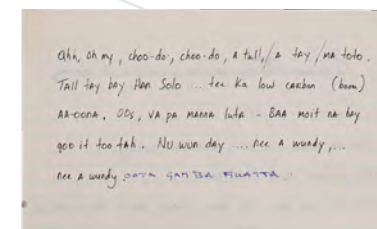 ahh, oh my, choo-do, choo-do, a tall,/a tay/ma toto.
Tall tay bay Han Solo ... tee ka low carbon (boom)
AA-oona. OOs, va pa manna luta - BAA moit na bay
goo it too tah. Nu wun day ... nee a wundy,...
nee a wundy OOTA GAMBA